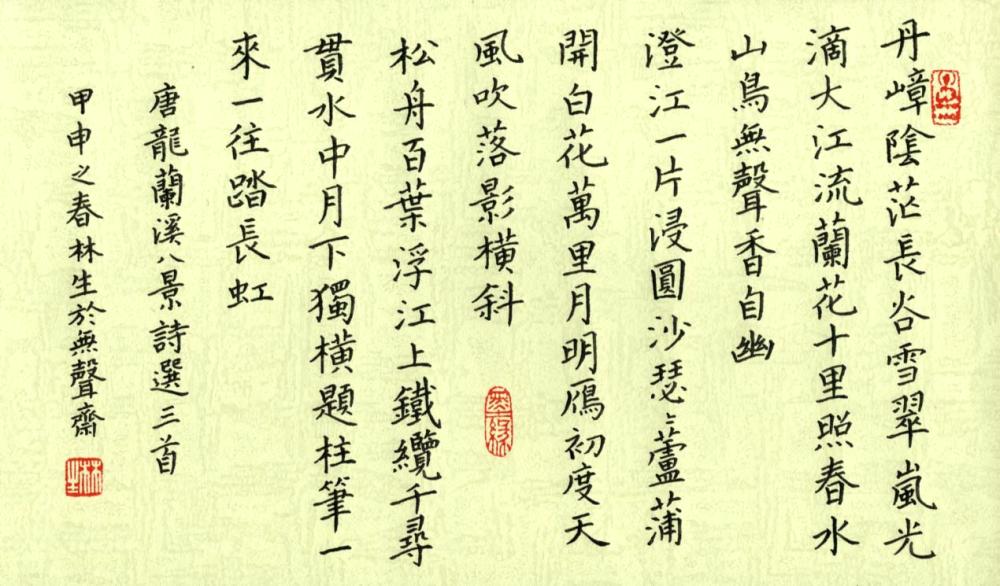 丹嶂陰茫長谷雪翠嵐光
滴大江流蘭花十里照春水
山鳥無聲香自幽
澄江一片浸圓沙瑟瑟蘆蒲
開白花萬里月明鴈初度天
風吹落影橫斜
松舟百葉浮江上鐵纜千尋
貫水中月下獨橫題柱筆一
來一往踏長虹
唐龍蘭溪八景詩選三首
甲申之春林生於無聲齋
林生